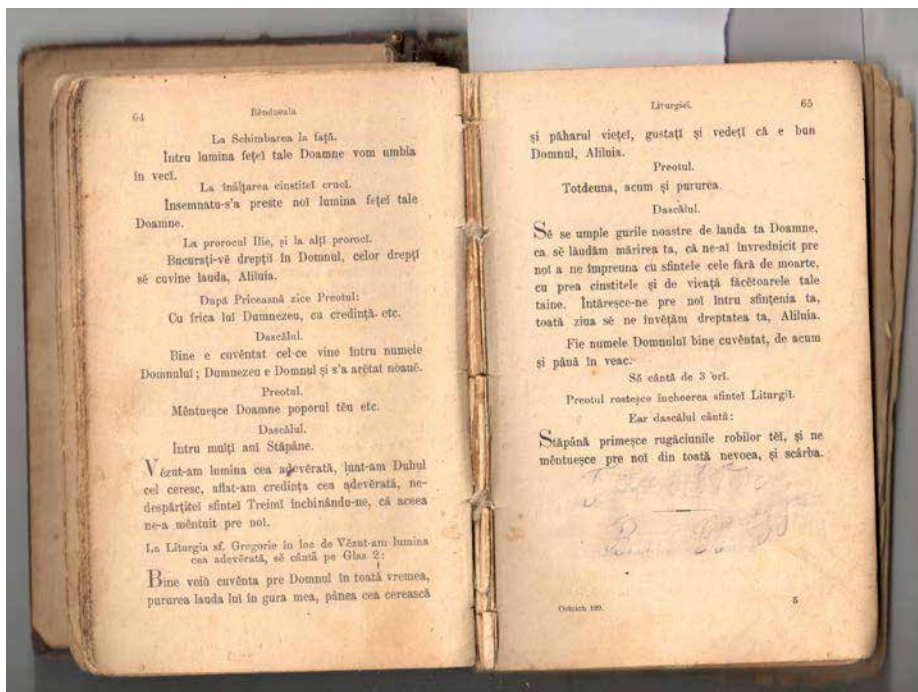 64
Rêndueala
La Schimbarea la față.
Întru lumina fețeĭ tale Doamne vom umbla
în vecĭ.
La înălțarea cinstiteĭ crucĭ.
Însemnatu-s'a preste noĭ lumina fețeĭ tale
Doamne.
La prorocul Ilie, și la alțĭ prorocĭ.
Bucurați-vĕ drepțiĭ în Domnul, celor drepțĭ
sĕ cuvine lauda, Aliluia.
După Priceasnă zice Preotul:
Cu frica luĭ Dumnezeu, cu credință. etc.
Dascălul.
Bine e cuvêntat cel-ce vine întru numele
Domnuluĭ; Dumnezeu e Domnul și s'a arĕtat noauĕ.
Preotul.
Mêntueșce Doamne poporul tĕu etc.
Dascălul.
Intru mulțĭ anĭ Stăpâne.
Vĕzut-am lumina cea adevĕrată, luat-am Duhul
cel ceresc, aflat-am credința cea adevĕrată, ne-
despărțiteĭ sfinteĭ Treimĭ închinându-ne, că aceea
ne-a mêntuit pre noĭ.
La Liturgia sf. Gregorie în loc de Vĕzut-am lumina
cea adevĕrată, sĕ cântă pe Glas 2:
Bine voiŭ cuvênta pre Domnul în toată vremea,
pururea lauda luĭ în gura mea, pânea cea cerească
Liturgieĭ.
65
și păharul viețeĭ, gustațĭ și vedețĭ că e bun
Domnul, Aliluia.
Preotul.
Totdeuna, acum și pururea.
Dascălul.
Sĕ se umple gurile noastre de lauda ta Doamne,
ca sĕ lăudăm mărirea ta, că ne-aĭ învrednicit pre
noĭ a ne împreuna cu sfintele cele fără de moarte,
cu prea cinstitele și de vieață făcĕtoarele tale
taine. Întăreșce-ne pre noĭ întru sfințenia ta,
toată ziua sĕ ne învĕțăm dreptatea ta, Aliluia.
Fie numele Domnuluĭ bine cuvêntat, de acum
și până în veac.
Sĕ cântă de 3 orĭ.
Preotul rosteșce încheerea sfinteĭ Liturgiĭ.
Ear dascălul cântă:
Stăpână primeșce rugăciunile robilor tĕĭ, și ne
mêntueșce pre noĭ din toată nevoea, și scârba.
Octoich 199.
5